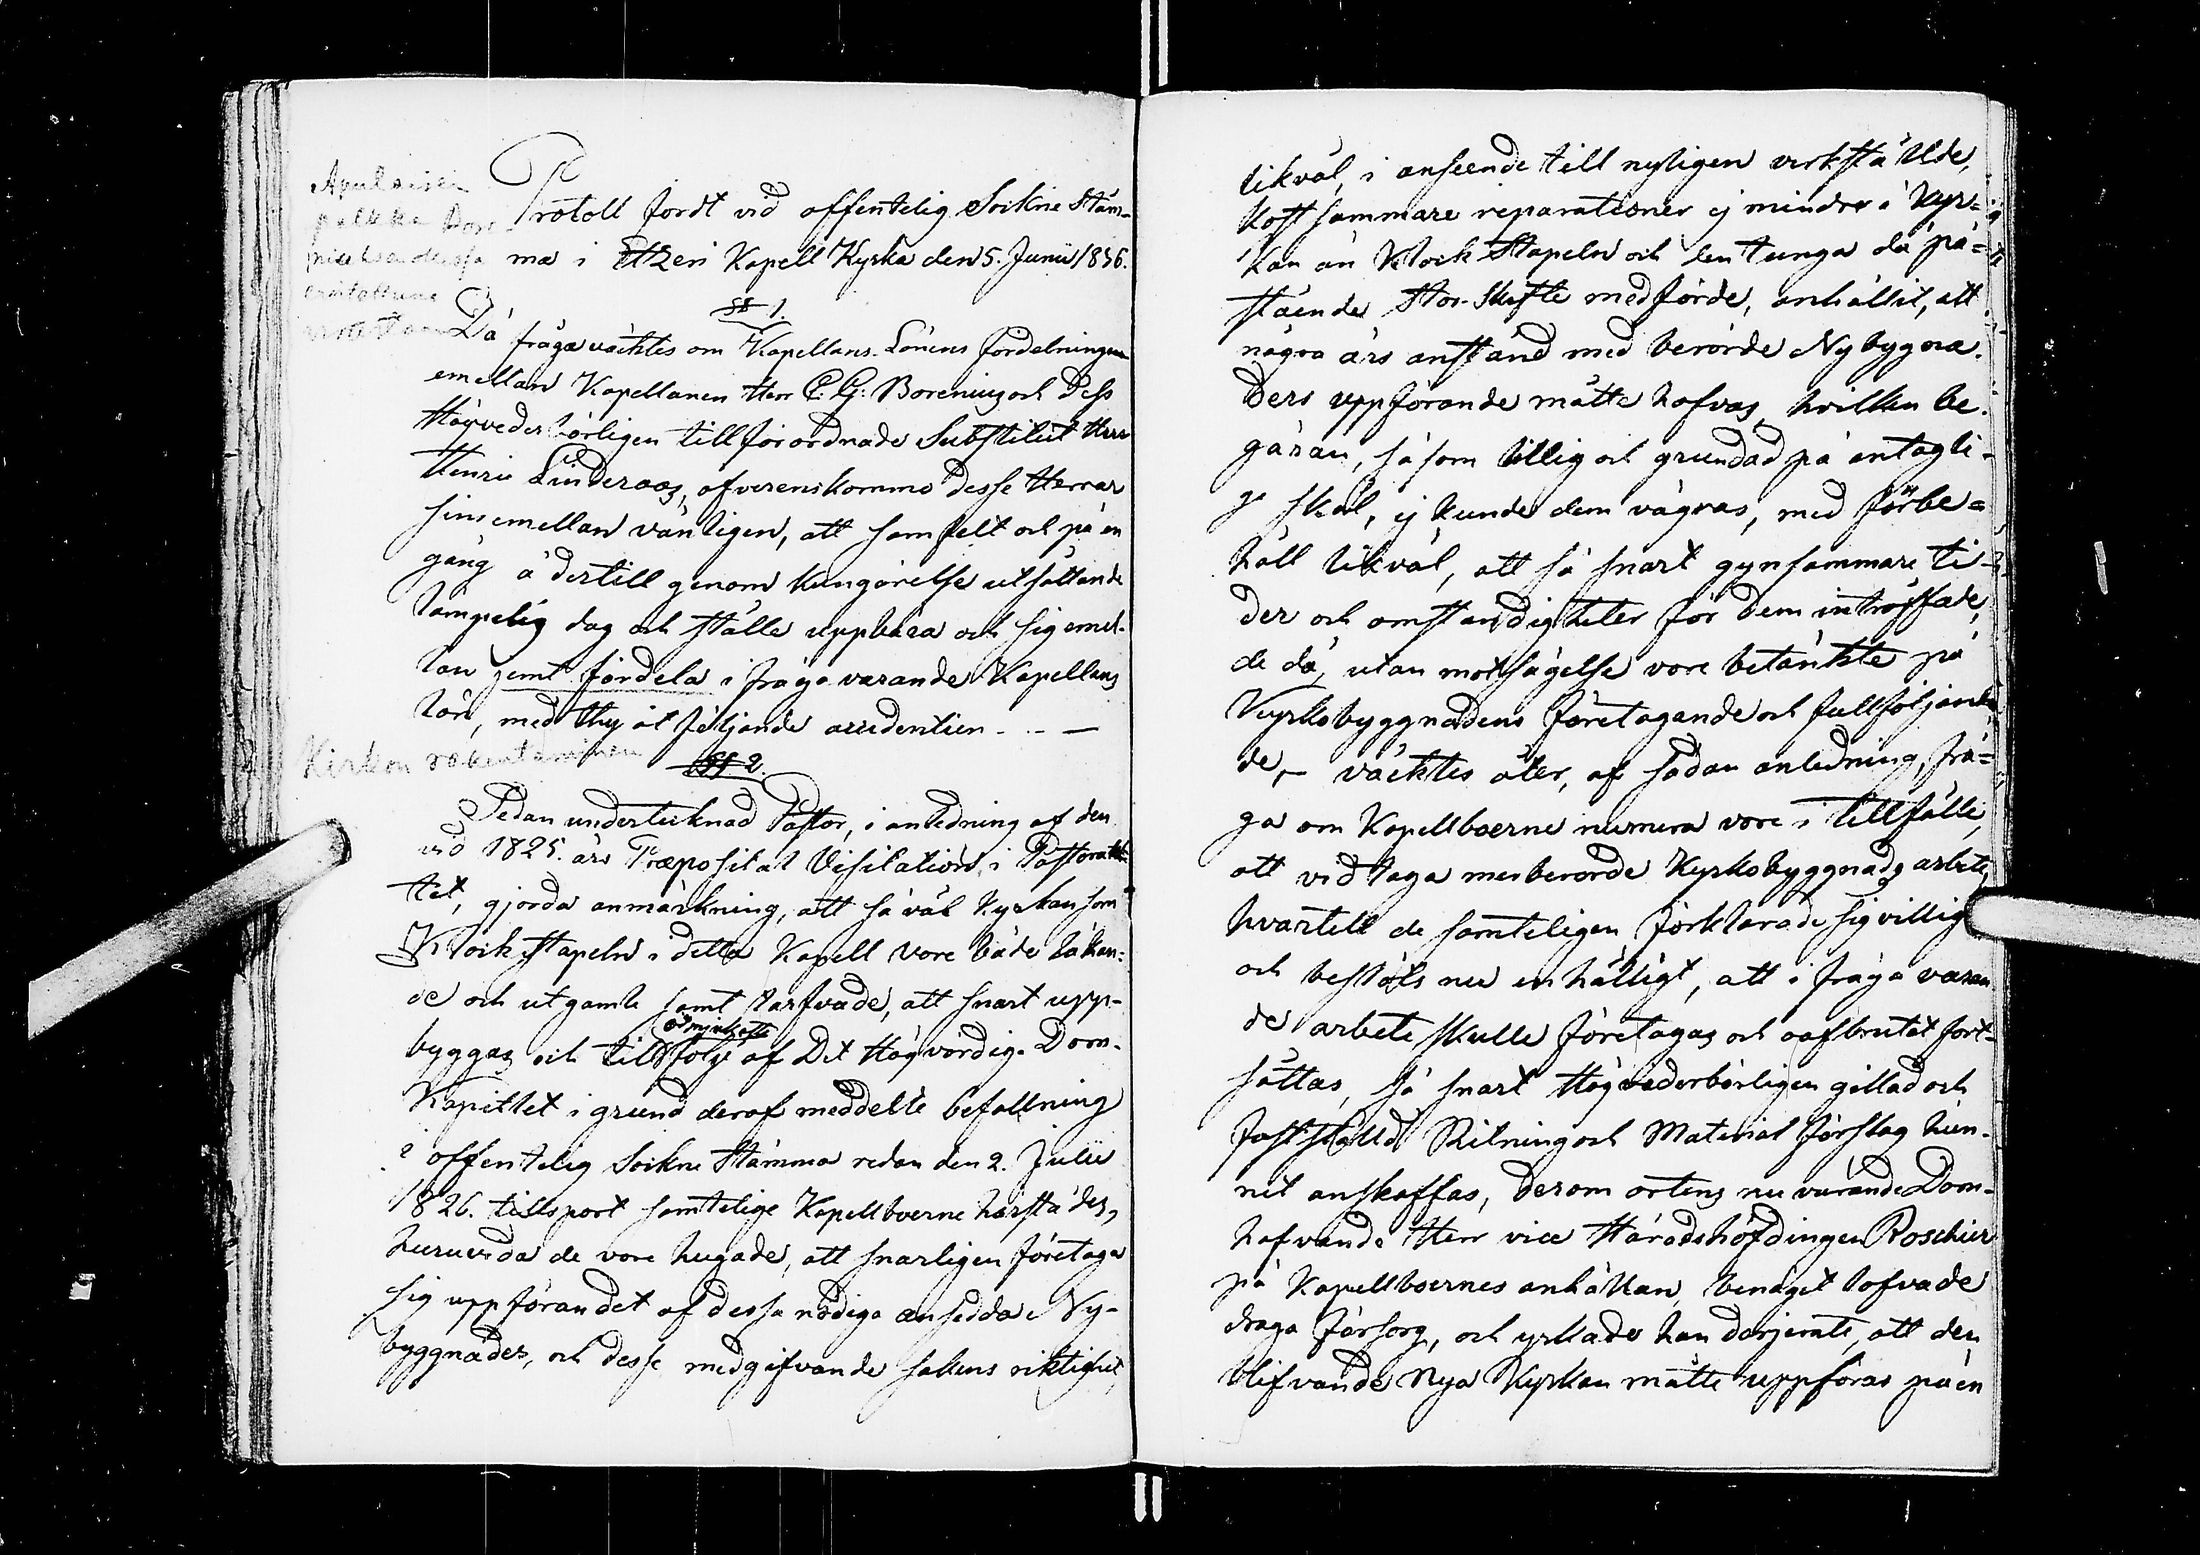 Apulaisen
palkka
Protokoll fördt vid offentelig Sockne Stäm-
ma i Etzeri Kapell Kyrka den 5. Junii 1836.
§ 1.
Då fråga väcktes om Kapellans-Lönens fördelningen
emellan Kapellanen Herr C. G: Borenius och Dess
Högvederbörligen tillförordnade Substitut Herr
Henric Linderoos, öfverenskommo desse Herrar
sins emellan vänligen, att samfelt och på en
gång å dertill genom kungörelse utsättande
lämpelig dag och ställe uppbära och sig emel-
lan jemt fördela i fråga varande Kapellans
lön, med thy åt följande accidentien - - -
Kirkon rakentaminen
§ 2.
Sedan undertecknad Pastor, i anledning af den
vid 1825. års Præposital Visitation i Pastora-
tet, gjorda anmärkning, att så väl Kyrkan som
Klockstapeln i detta Kapell vore både läkan-
de och utgamle samt tarfvade, att snart upp-
byggas och till ödmjukaste följe af Det Högvördige Dom-
Kapitlet i grund deraf meddelte befallning
i offentelig Sockne Stämma redan den 2. Julii
1826. tillsport samtelige Kapellboerne härstädes,
huruvida de vore hugade, att snarligen företaga
sig uppförandet af dessa nödiga ansedda Ny-
byggnader, och desse medgifvande sakens riktighet,
likväl, i anseende till nyligen verkstälde,
kostsammare reparationer ej mindre i Kyr-
kan än Klock Stapeln och den tunga då på-
stående Stor-Skifte medförde, anhållit, att
några års anstånd med berörde Nybygna-
ders uppförande måtte hafvas, hvilken be-
gäran, såsom billig och grundad på antagli-
ga skäl, ej kunde dem vägras, med förbe-
håll likväl, att så snart gynsammare ti-
der och omständigheter för dem inträffade,
de då, utan motsägelse vore betänkte på
Kyrkobyggnadens företagande och fullföljan-
de, - väcktes åter, af sådan anledning, frå-
ga om Kapellboerne numera vore i tillfälle,
att vidtaga merberörde Kyrkobyggnads arbete,
hvartill de samteligen förklarade sig villige
och beslöts nu enhälligt, att i fråga varan
de arbete skulle företagas och oafbrutet fort-
sättas, så snart Högvederbörligen gillad och
fastställd Ritning och Material förslag hun-
nit anskaffas, derom ortens nu varande Dom-
hafvande Herr vice Häradshöfdingen Roschier
på Kapellboernes anhållan, benäget lofvade
draga försorg, och yrkade han derjemte, att den
blifvande Nya Kyrkan måtte uppföras på en